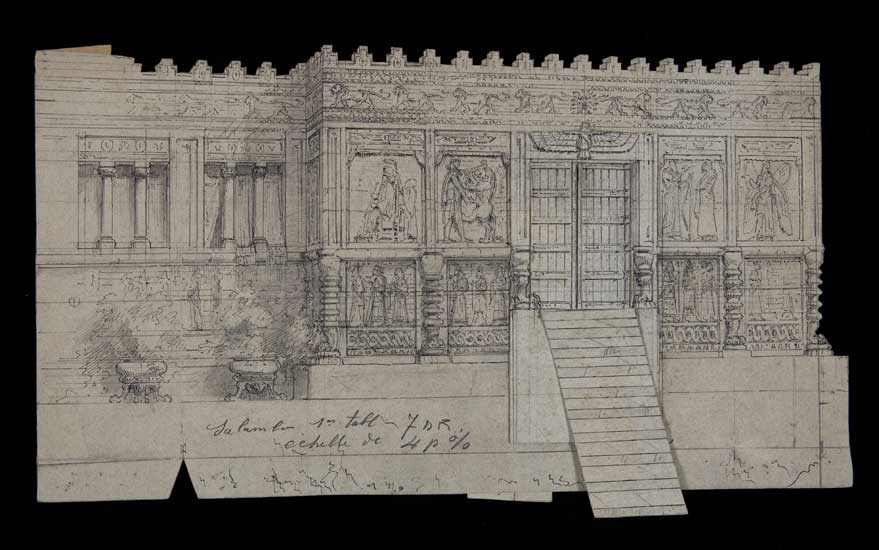 Salambo 1er tabl 7 DR.
echelle de 4 p %